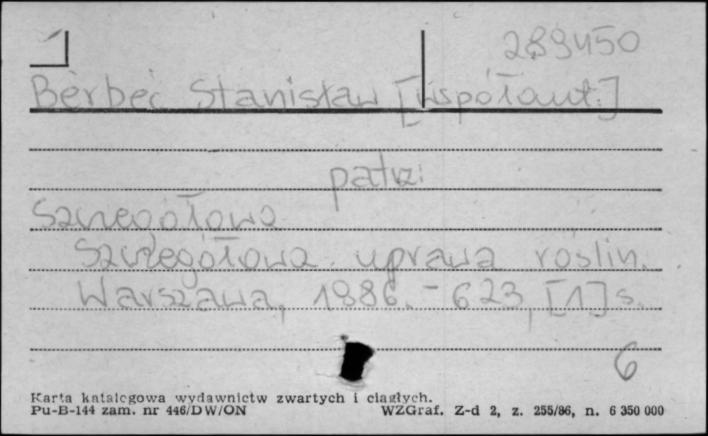 1
289450
Berbeć Stanisław [współaut.]
patrz:
Szczegółowa
Szczegółowa uprawa roślin.
Warszawa, 1986. - 623, [1] s.
6
Karta katalogowa wydawnictw zwartych i ciągłych.
Pu-B-144 zam. nr 446/DW/ON WZGraf. Z-d 2, z. 255/86, n. 6 350 000